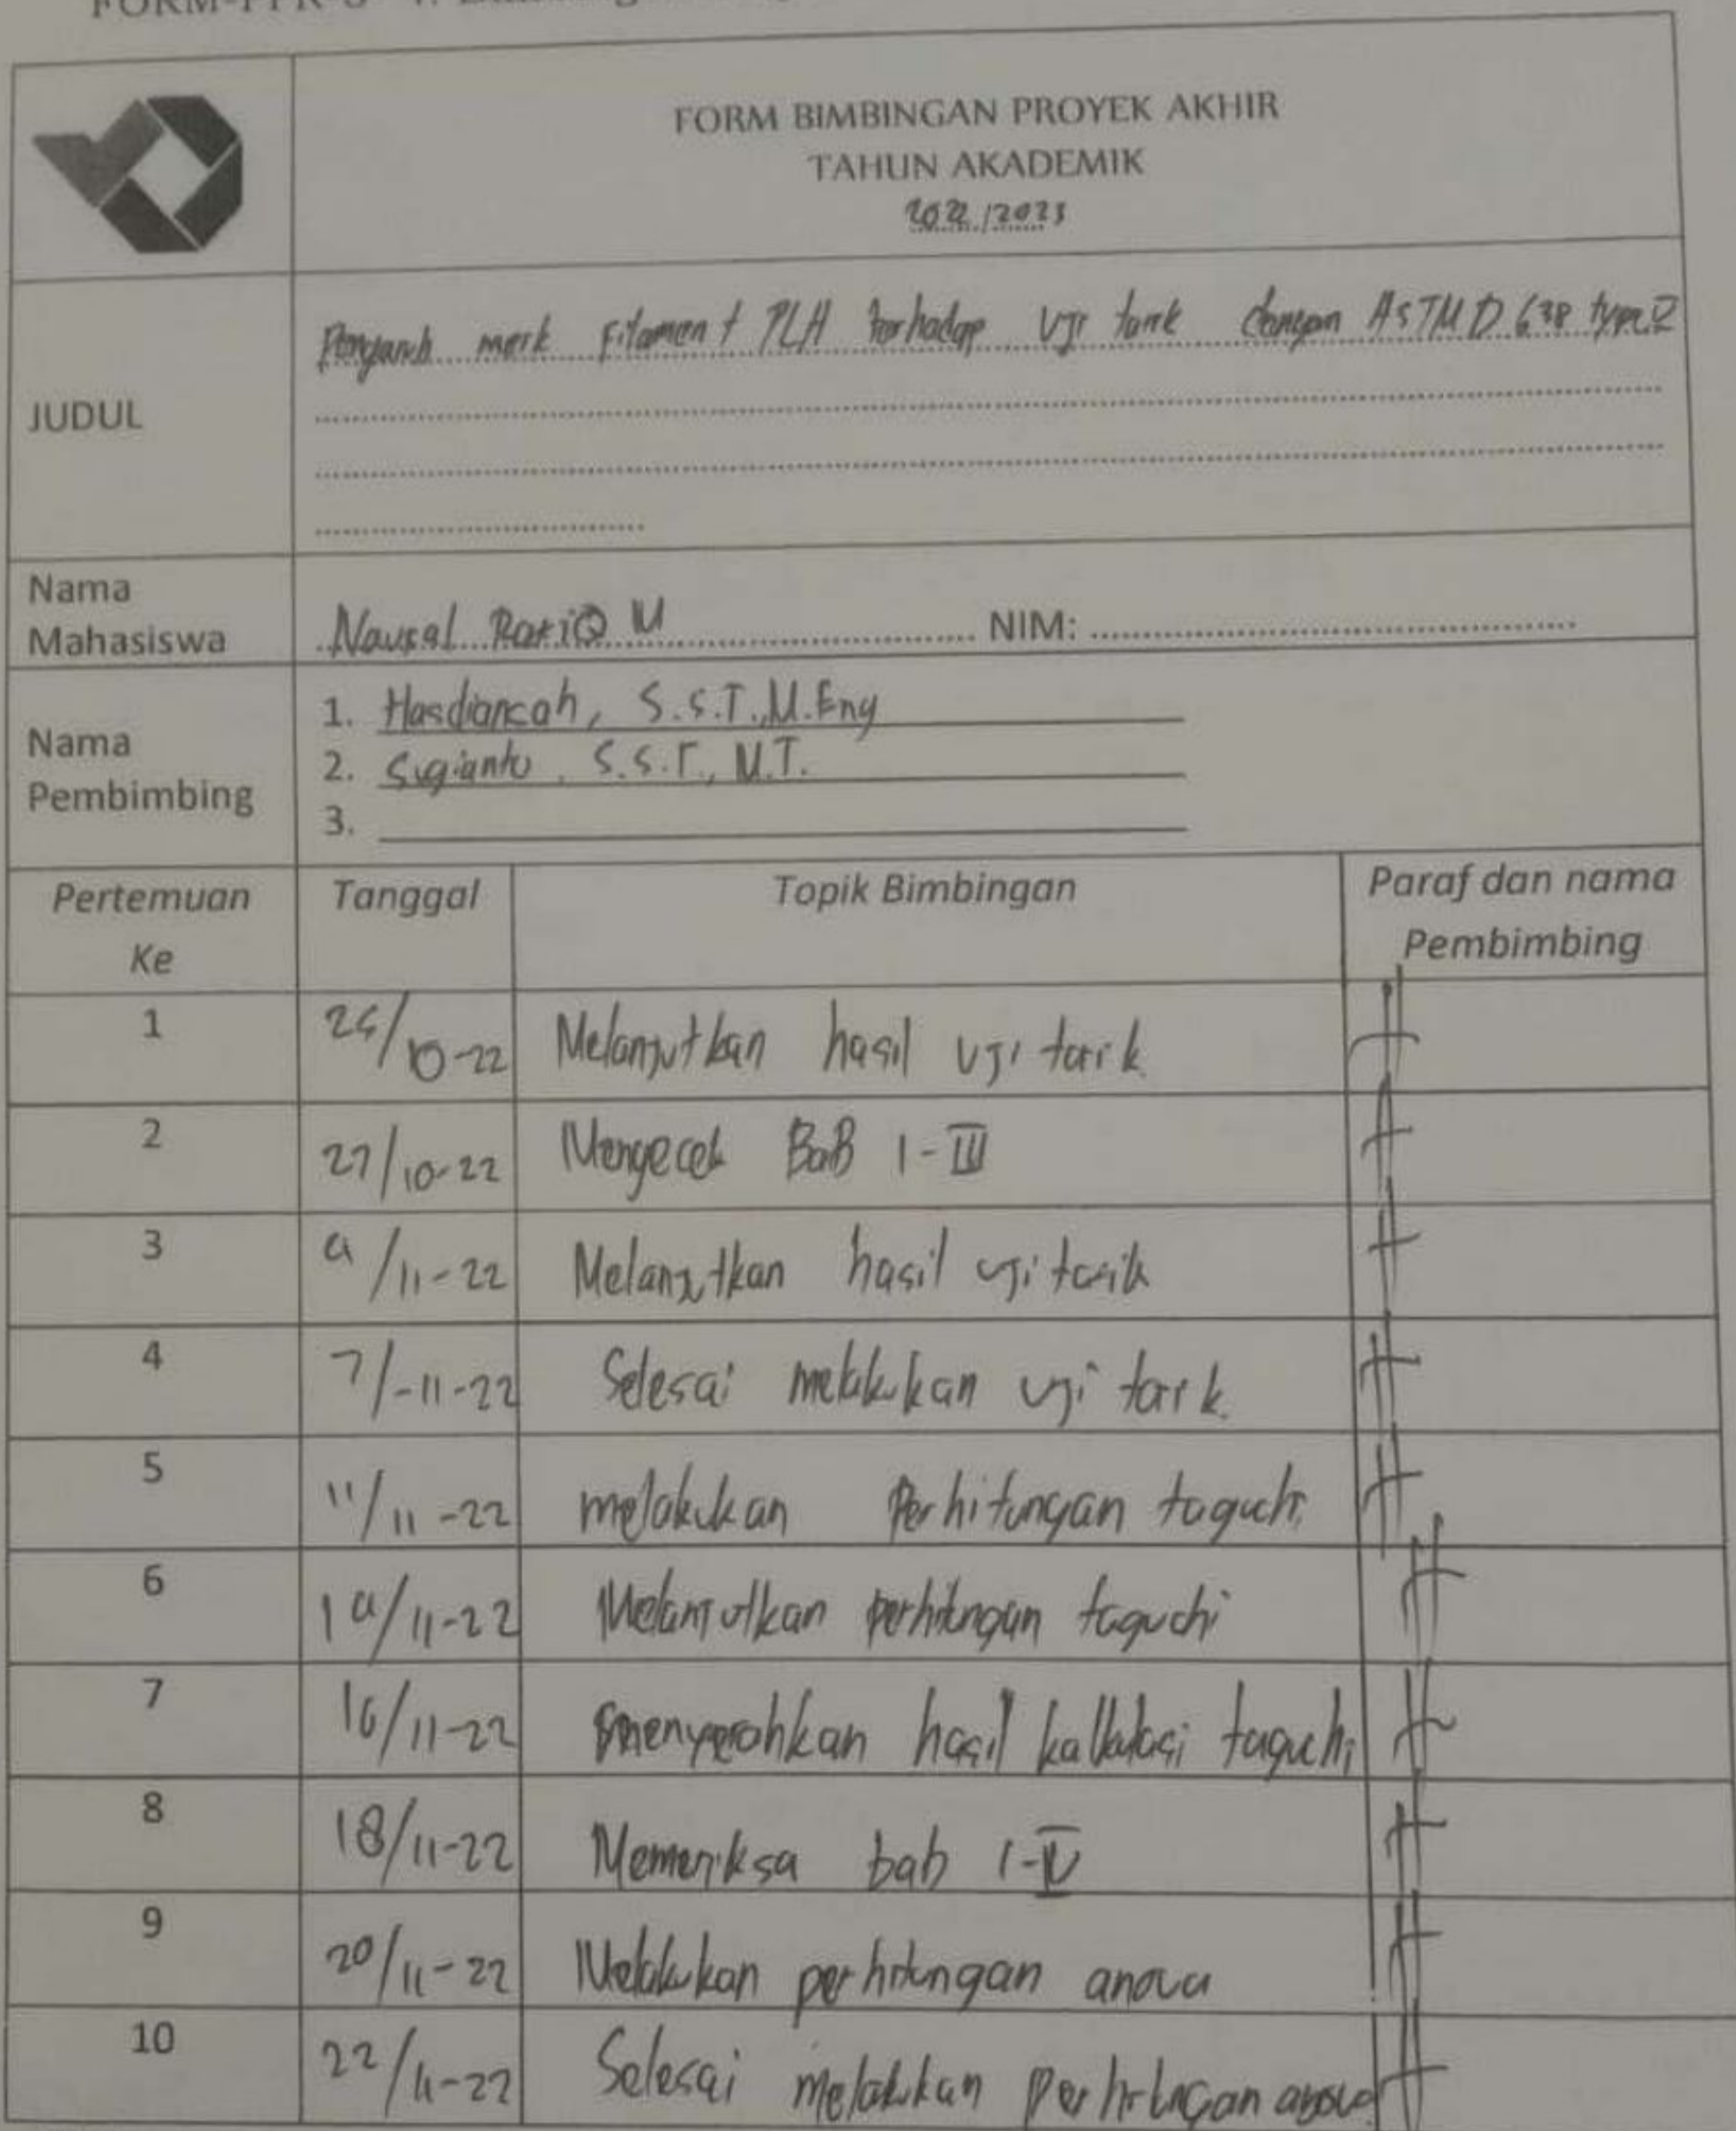 FORM BIMBINGAN PROYEK AKHIR
TAHUN AKADEMIK
2022/2023
JUDUL
Pengaruh merk Filament PLA terhadap Uji tarik dengan ASTM D 638 type
Nama
Mahasiswa
Naufal Rafiq M NIM:
Nama
Pembimbing
1. Hasdiansah, S.S.T., M.Eng
2. Sugianto, S.S.T., M.T.
3.
Pertemuan Ke Tanggal Topik Bimbingan Paraf dan nama Pembimbing
1 /10-22 Melanjutkan hasil Uji tarik
2 27/10-22 Mengecek BaB I-III
3 4/11-22 Melanjutkan hasil uji tarik
4 7/-11-22 Selesai melakukan uji tarik
5 11/11-22 melakukan Perhitungan taguchi
6 14/11-22 Melanjutkan perhitungan taguchi
7 16/11-22 menyerahkan hasil kalkulasi taguchi
8 18/11-22 Memeriksa bab I-IV
9 20/11-22 Melakukan perhitungan anova
10 22/11-22 Selesai melakukan Perhitungan anova